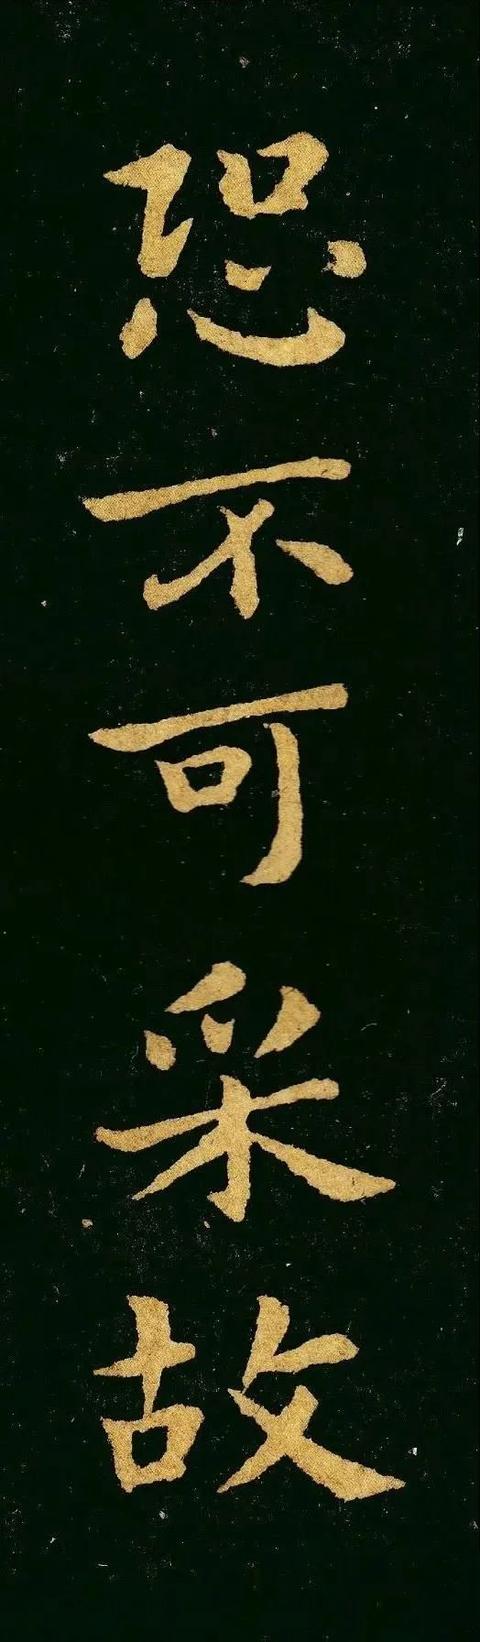 恐不可采故